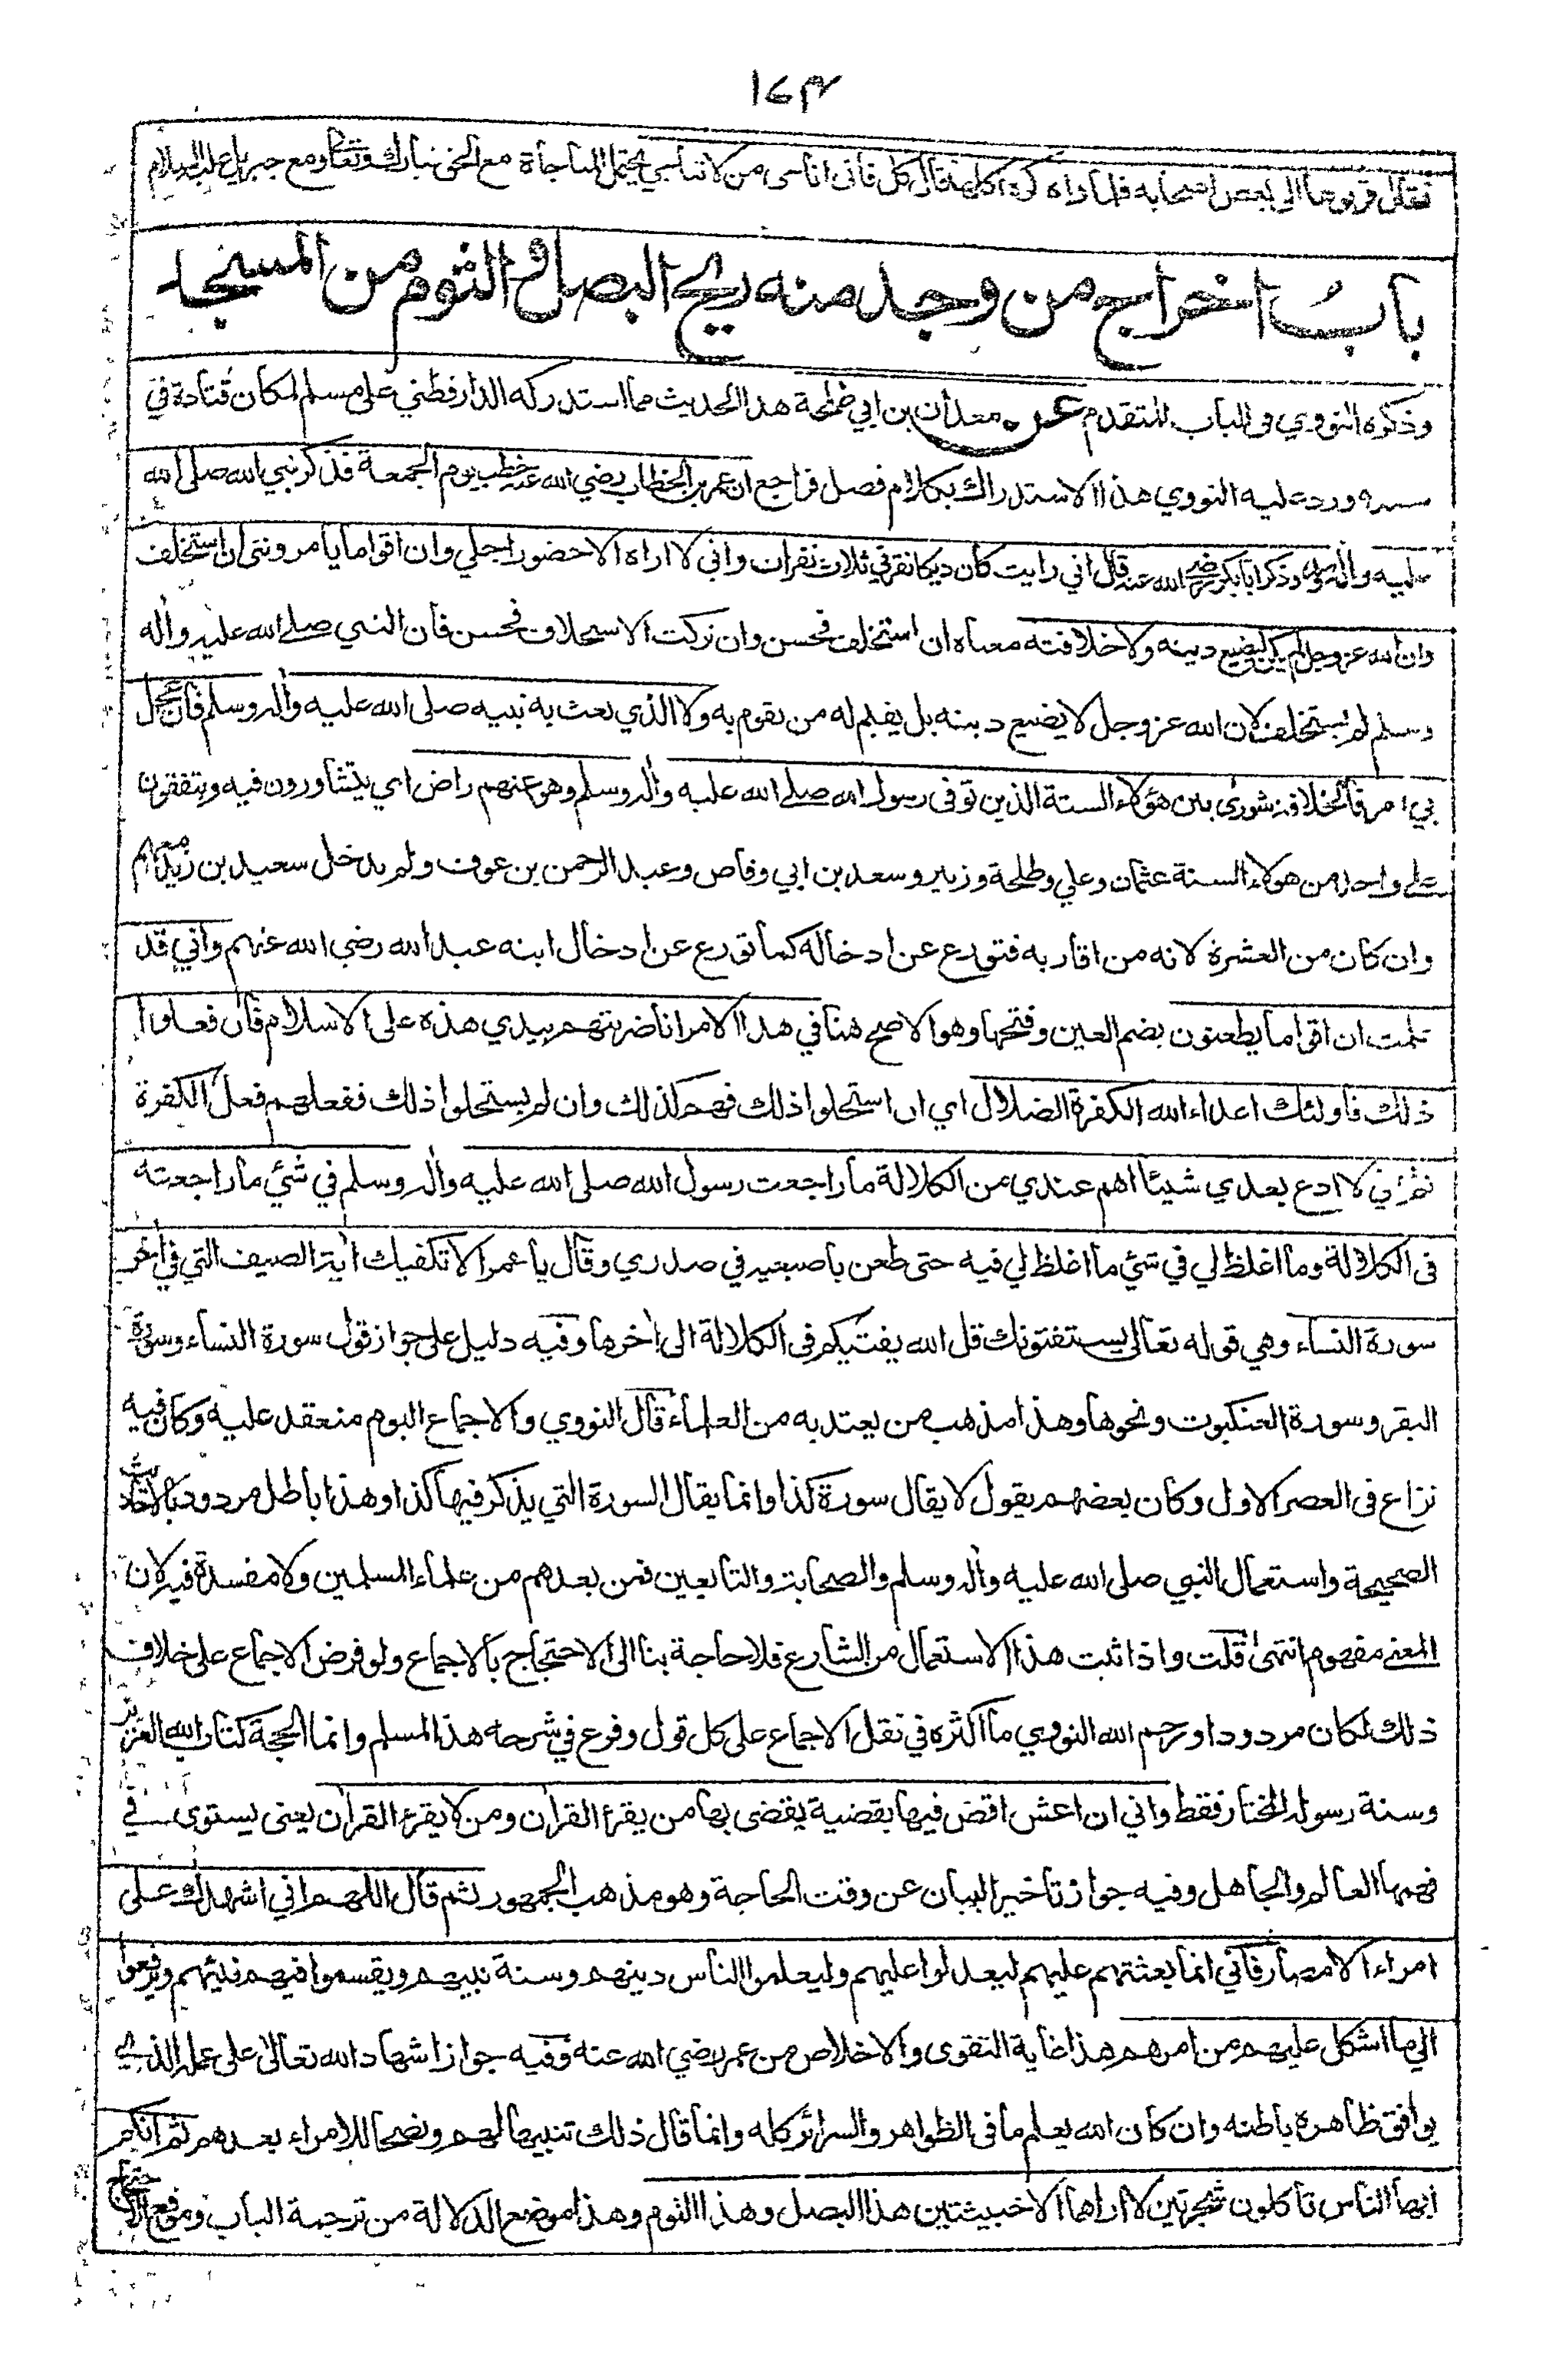 ١٧٣
فقال قربوها الى بعض اصحابه فلما راه كره اكلها قال كل فاني اناجي من لا تناجي يحتمل المناجاة مع الحق تبارك وتعالى ومع جبريل عليه السلام
باب اخراج من وجد منه ريح البصل والثوم من المسجد
وذكره النووي فى الباب المتقدم عن معدان بن ابي طلحة هذا الحديث مما استدركه الدارقطني على مسلم لمكان قتادة في
سنده ورد عليه النووي هذا الاستدراك بكلام فصل فراجع ان عمر بن الخطاب رضي الله عنه خطب يوم الجمعة فذكر نبي الله صلى الله
عليه واله وسلم وذكر ابا بكر رضي الله عنه قال اني رايت كان ديكا نقرني ثلاث نقرات واني لا اراه الا حضور اجلي وان اقواما يامرونني ان استخلف
وان الله عز وجل لم يكن ليضيع دينه ولا خلافته معناه ان استخلف فحسن وان تركت الاستخلاف فحسن فان النبي صلى الله عليه واله
وسلم لم يستخلف لان الله عز وجل لا يضيع دينه بل يقيم له من يقوم به ولا الذي بعث به نبيه صلى الله عليه واله وسلم فان عجل
بي امر فالخلافة شورى بين هؤلاء الستة الذين توفى رسول الله صلى الله عليه واله وسلم وهو عنهم راض اي يتشاورون فيه ويتفقون
على واحد من هولاء الستة عثمان وعلي وطلحة وزبير وسعد بن ابي وقاص وعبد الرحمن بن عوف ولم يدخل سعيد بن زيد معهم
وان كان من العشرة لانه من اقاربه فتورع عن ادخاله كما تورع عن ادخال ابنه عبد الله رضي الله عنهم واني قد
علمت ان اقواما يطعنون بضم العين وفتحها وهو الاصح هنا في هذا الامر انا ضربتهم بيدي هذه على الاسلام فان فعلوا
ذلك فاولئك اعداء الله الكفرة الضلال اي ان استحلوا ذلك فهم كذلك وان لم يستحلوا ذلك ففعلهم فعل الكفرة
ثم اني لا ادع بعدي شيئا اهم عندي من الكلالة ما راجعت رسول الله صلى الله عليه واله وسلم في شئ ما راجعته
فى الكلالة وما اغلظ لي في شئ ما اغلظ لي فيه حتى طعن باصبعيه في صدري وقال يا عمر الا تكفيك اية الصيف التي في اخر
سورة النساء وهي قوله تعالى يستفتونك قل الله يفتيكم فى الكلالة الى اخرها وفيه دليل على جواز قول سورة النساء وسورة
البقر وسورة العنكبوت ونحوها وهذا مذهب من يعتد به من العلماء قال النووي والاجماع اليوم منعقد عليه وكان فيه
نزاع فى العصر الاول وكان بعضهم يقول لا يقال سورة كذا وانما يقال السورة التي يذكر فيها كذا وهذا باطل مردود بالاحاديث
الصحيحة واستعمال النبي صلى الله عليه واله وسلم والصحابة والتابعين فمن بعدهم من علماء المسلمين ولا مفسدة فيه لان
المعنى مفهوم انتهى قلت واذا ثبت هذا الاستعمال من الشارع فلا حاجة بنا الى الاحتجاج بالاجماع ولو فرض الاجماع على خلاف
ذلك لكان مردودا ورحم الله النووي ما اكثره في نقل الاجماع على كل قول وفرع في شرحه هذا المسلم وانما الحجة كتاب الله العزيز
وسنة رسوله المختار فقط واني ان اعش اقض فيها بقضية يقضى بها من يقرء القران ومن لا يقرء القران يعنى يستوى في
فهمها العالم والجاهل وفيه جواز تاخير البيان عن وقت الحاجة وهو مذهب الجمهور ثم قال اللهم اني اشهدك على
امراء الامصار فاني انما بعثتهم عليهم ليعدلوا عليهم وليعلموا الناس دينهم وسنة نبيهم ويقسموا فيهم فيئهم ويرفعوا
الي ما اشكل عليهم من امرهم هذا غاية التقوى والاخلاص من عمر رضي الله عنه وفيه جواز اشهاد الله تعالى على عمله الذي
يوافق ظاهره باطنه وان كان الله يعلم ما فى الظواهر والسرائر كله وانما قال ذلك تنبيها لهم ونصحا للامراء بعدهم ثم انكم
ايها الناس تاكلون شجرتين لا اراهما الا خبيثتين هذا البصل وهذا الثوم وهذا موضع الدلالة من ترجمة الباب وموقع الاحتجاج